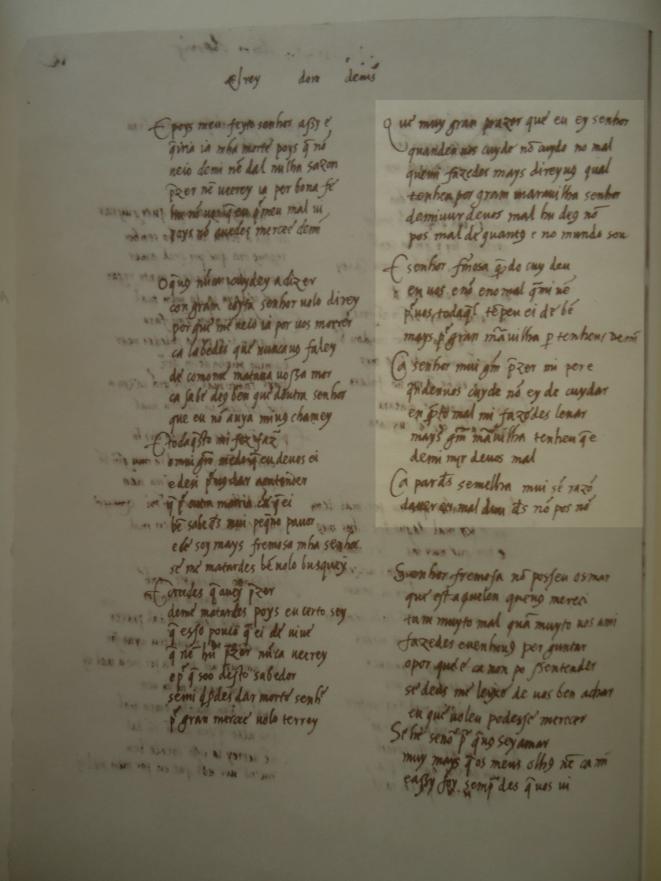 el rey dom denis
E poys meu feyto senhor assy e
q̄iria ia mha morte poys q̄ nō
neio demi nē dal nulha sazon
p̄zer nē ueerey ia per bona fe
meu mal ui
poys nō auedes mercee demī
Oq̄ uꝯ nūca cuydey a dizer
con gram coyta senhor uolo direy
por que me ueio ia por uos morrer
ca sabedes que nuncauꝯ faley
de comome mataua uossa mor
ca sabe deꝯ ben que doutra senhor
que eu nō auya miuꝯ chamey
E todaq̄sto mi fez faz̄
omui grā medo q̄ eu deuos ei
e desi por uꝯ dar a entender
q̄ por outra moiria de q̄ ei
bē sabedes mui peq̄no pauor
e de soy mays fremosa mha senhor
se me matardes bē uolo busquey
E creedes q̄ auerey p̄zer
deme matardes poys eu certo sey
q̄ esso pouco q̄ ei de uiuer
q̄ nē hūu p̄zer nūca ueerrey
e por q̄ soo desto sabedor
semi q̄ serdes dar morte senhor
por gran mercee uolo terrey
Que muy gran prazer que eu ey senhor
quanden uos cuyde nō cuydo no mal
quemi fazedes mays direyuꝯ qual
tenhen por gram marauilha senhor
demi uijr deuos mal hu deꝯ nō
pos mal de quantꝯ e no mundo son
E senhor fremosa q̄ndo cuy deu
en uos e nō eno mal q̄mi uē
por uos todaq̄l tēpeu ei de bē
mays por gran marauilha per tenhen demī
Ca senhor mui gram p̄zer mi per e
q̄nden uos cuyde nō ey de cuydar
en q̄nto mal mi fazedes leuar
mays gram marauilha tenhen que
demi uijr deuos mal
Ca par deꝯ semelha mui sē razō
dauer eu mal dum deꝯ nō pos nō
Senhor fremosa nō posseu osmar
que est aquelen queuꝯ mereci
tam muyto mal quā muyto uos ami
fazedes euenhouꝯ preguntar
opor que e ca non possentender
se deus me leixe de uos ben achar
en que uoleu podesse merecer
Se he senhor por q̄uꝯ sey amar
muy mays q̄ os meus olhꝯ nē ca mī
e assy foy semp̄ des q̄ uos ui